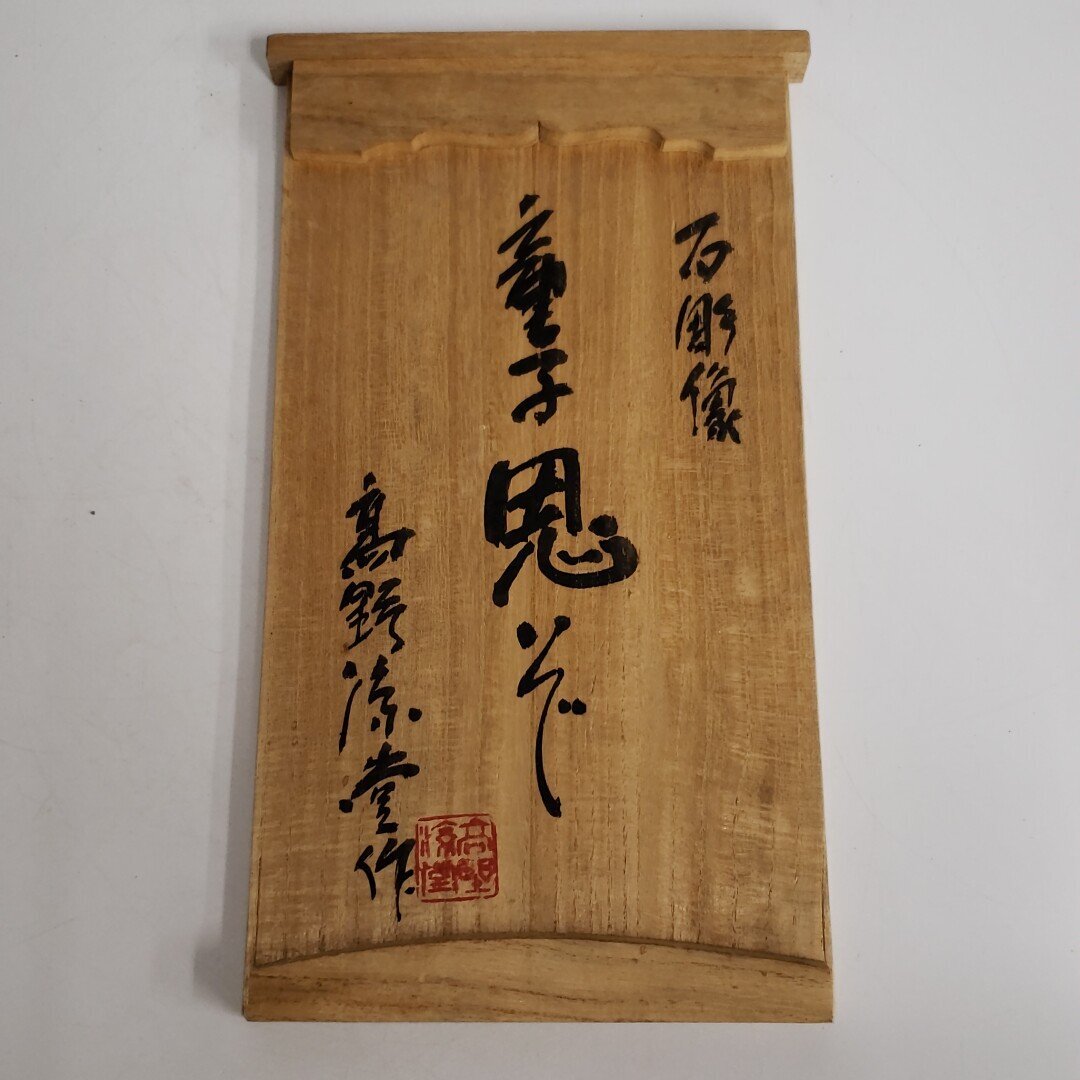 石彫像
童子
高野涼堂作
高野
涼堂